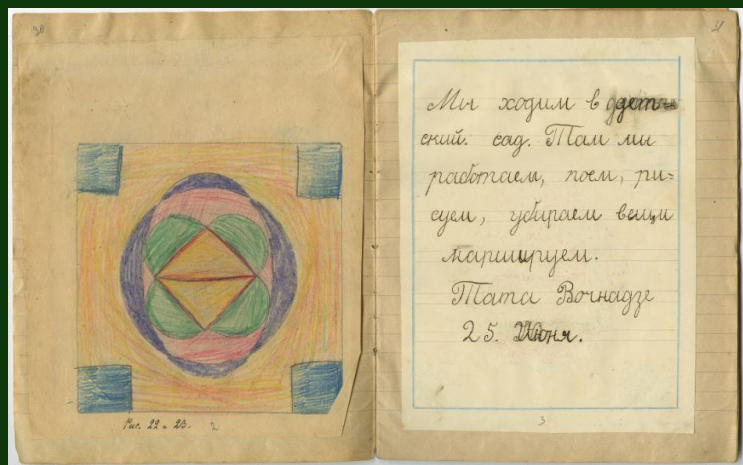 30
Рис. 22 и 23. 2
31
Мы ходим в детс-
ский. сад. Там мы
работаем, поем, ри=
суем, убираем вещи
маршируем.
Тата Вочнадзе
25. Июня.
3